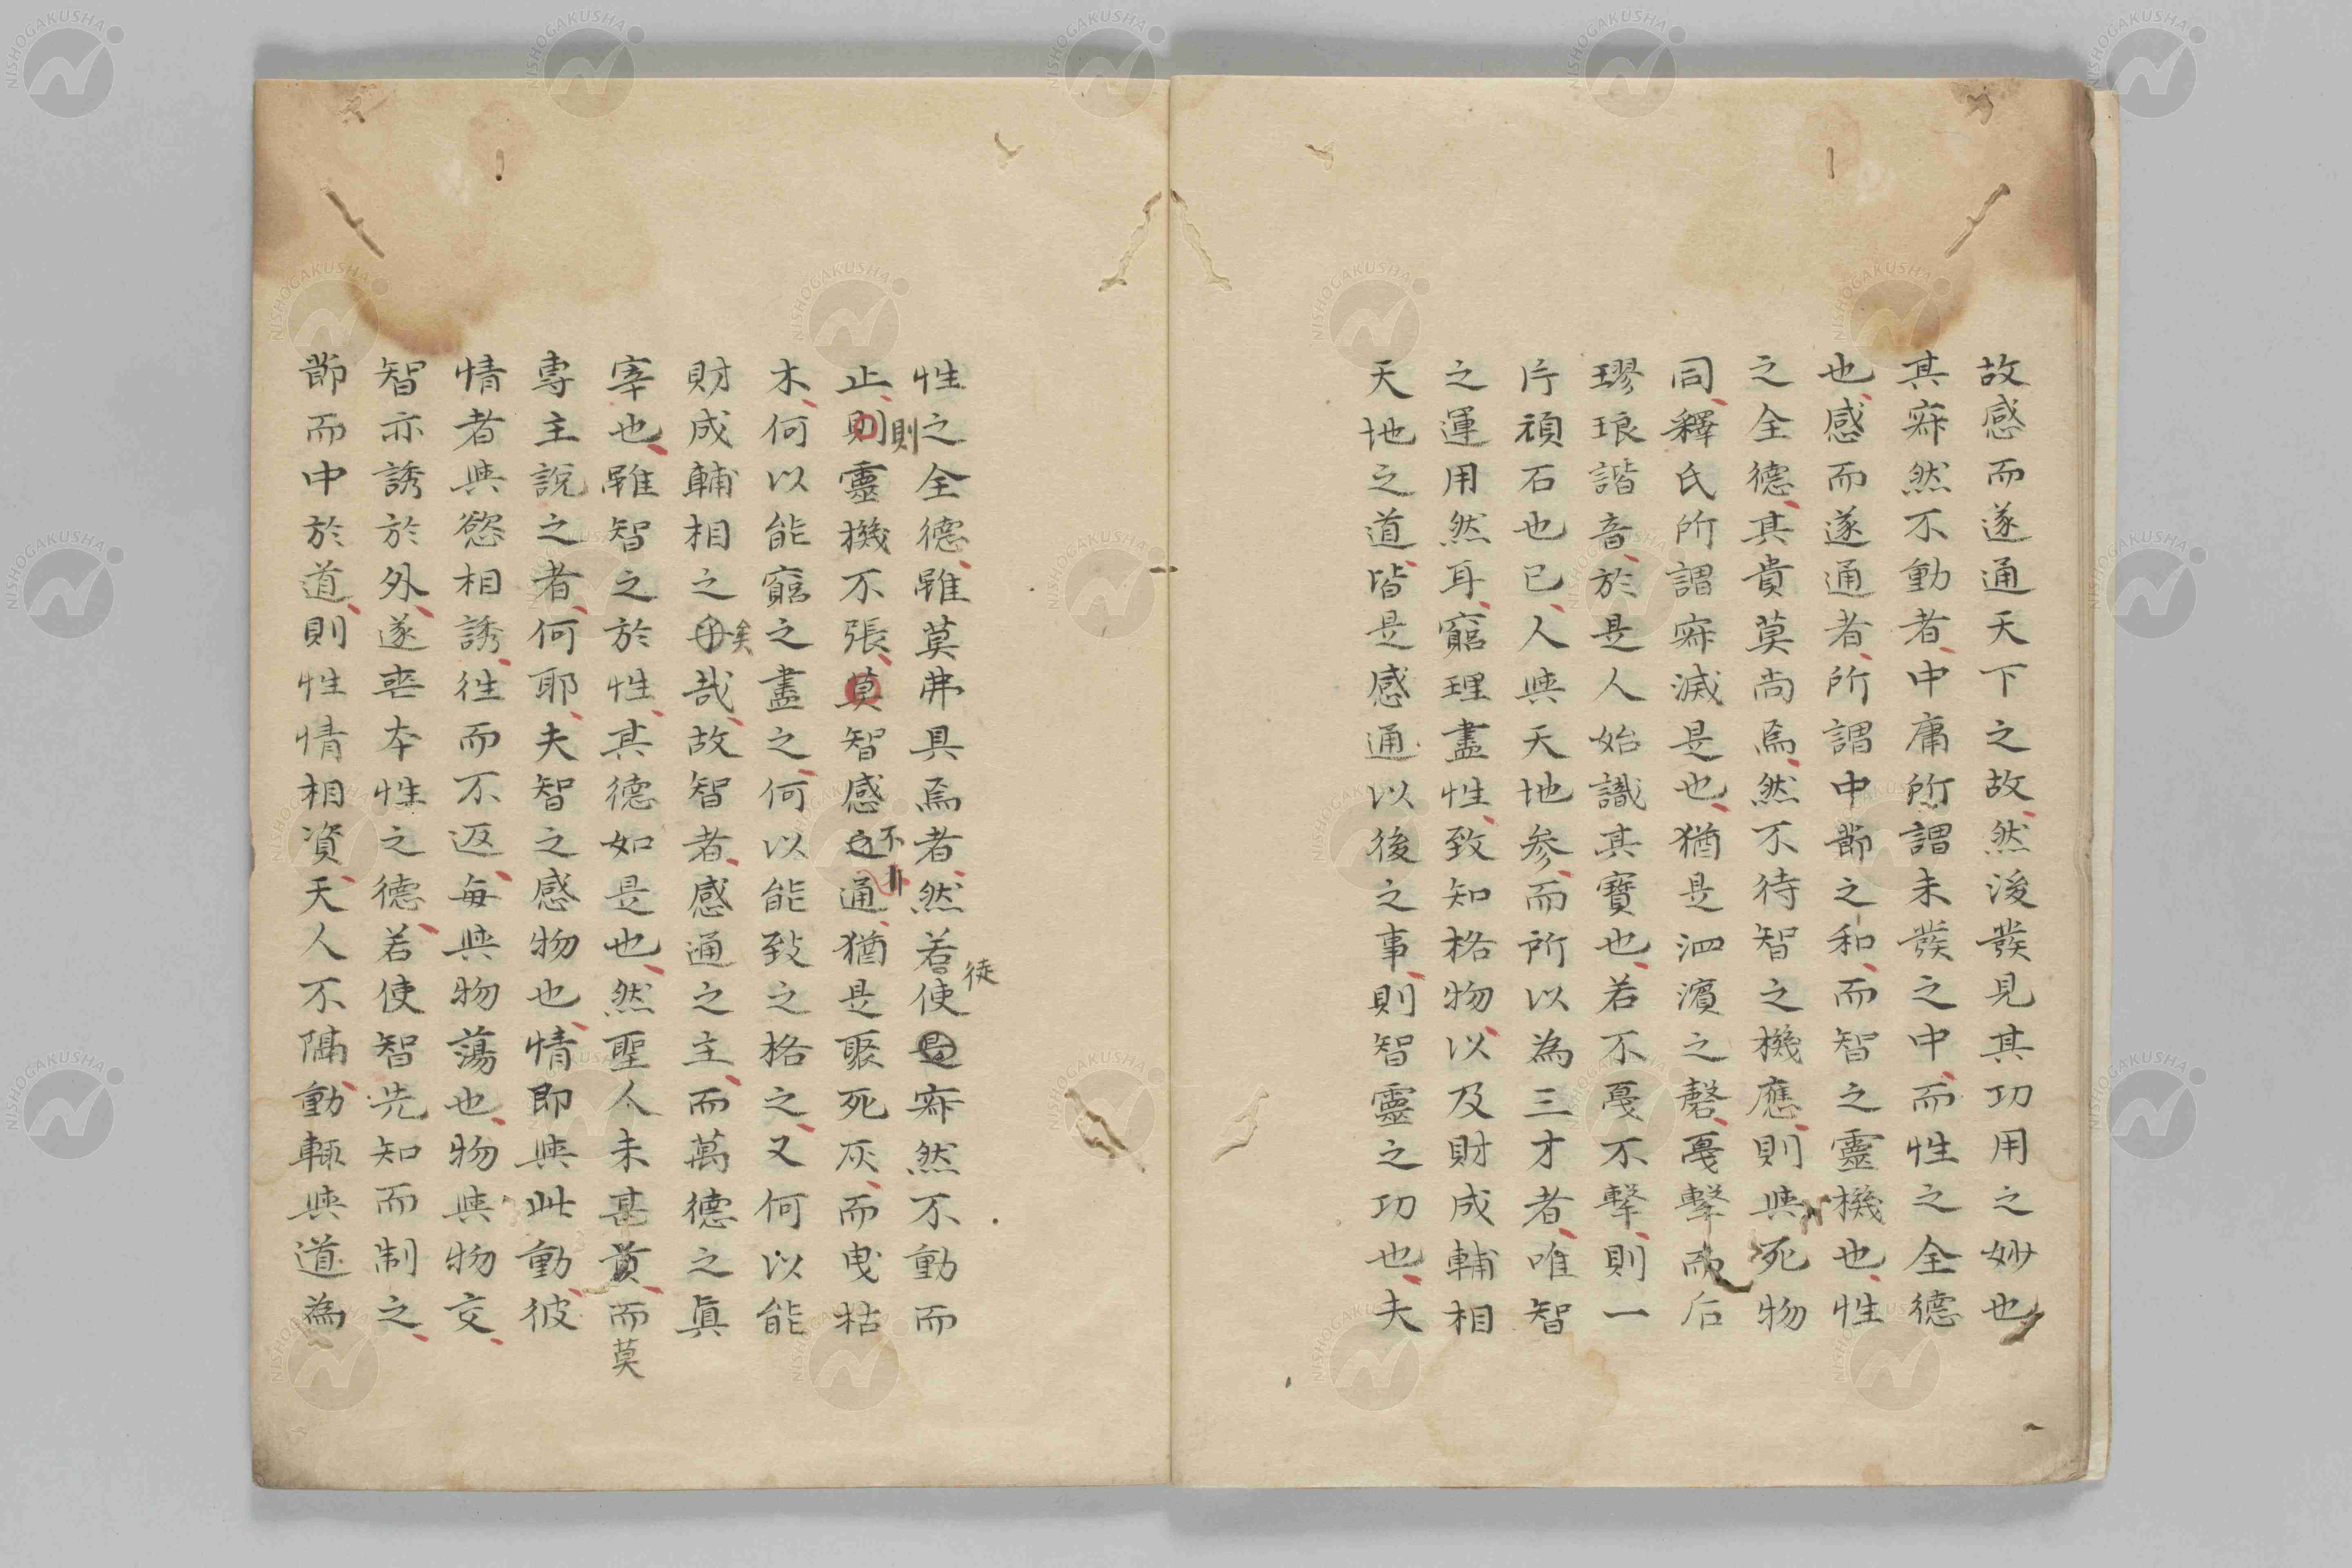 故感而遂通天下之故然後發見其功用之妙也
其寂然不動者中庸所謂未發之中而性之全德
也感而遂通者所謂中節之和而智之靈機也性
之全德其貴莫尚焉然不待智之機應則與死物
同釋氏所謂寂滅是也猶是泗濱之磬戛擊而后
璆琅諧音於是人始識其寶也若不戛不擊則一
片頑石也已人與天地参而所以為三才者唯智
之運用然耳窮理盡性致知格物以及財成輔相
天地之道皆是感通以後之事則智靈之功也夫
性之全德雖莫弗具焉者然若使寂然不動而
徒
止則靈機不張莫智感之通猶是聚死灰而曳枯
則
不
木何以能窮之盡之何以能致之格之又何以能
財成輔相之哉故智者感通之主而萬德之眞
矣
宰也雖智之於性其德如是也然聖人未甚貴而莫
專主說之者何耶夫智之感物也情即與此動彼
情者與慾相誘徃而不返每與物蕩也物與物交
智亦誘於外遂喪本性之德若使智先知而制之
節而中於道則性情相資天人不隔動輙與道為
NISHOGAKUSHA